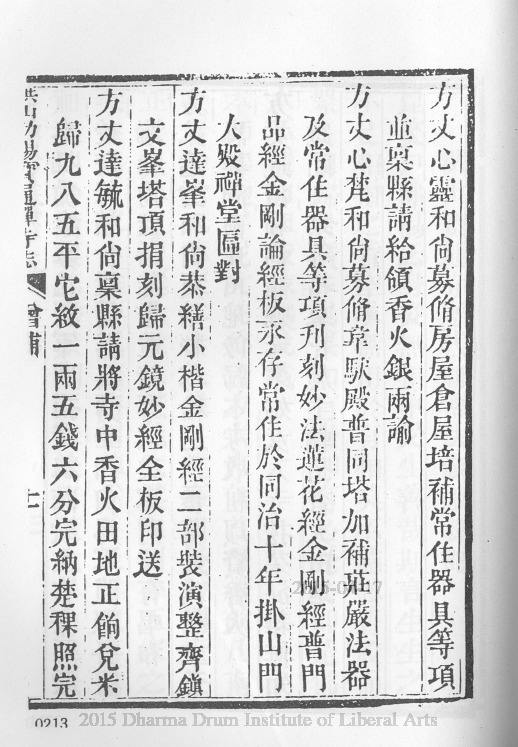 方丈心靈和尚募脩房屋倉屋培補常住器具等項
並稟縣請給領香火銀兩諭
方丈心梵和尚募脩韋馱殿普同塔加補莊嚴法器
及常住器具等項刊刻妙法蓮花經金剛經普門
品經金剛論經板永存常住於同治十年掛山門
大殿禪堂匾對
方丈達峯和尚恭繕小楷金剛經二部裝演整齊鎮
文峯塔頂捐刻歸元鏡妙經全板印送
方丈達毓和尚稟縣請將寺中香火田地正餉兌米
歸九八五平它紋一兩五錢六分完納楚稞照完
洪山幼暘寶通禪寺志
曾補
七
0213
2015 Dharma Drum Institute of Liberal Arts